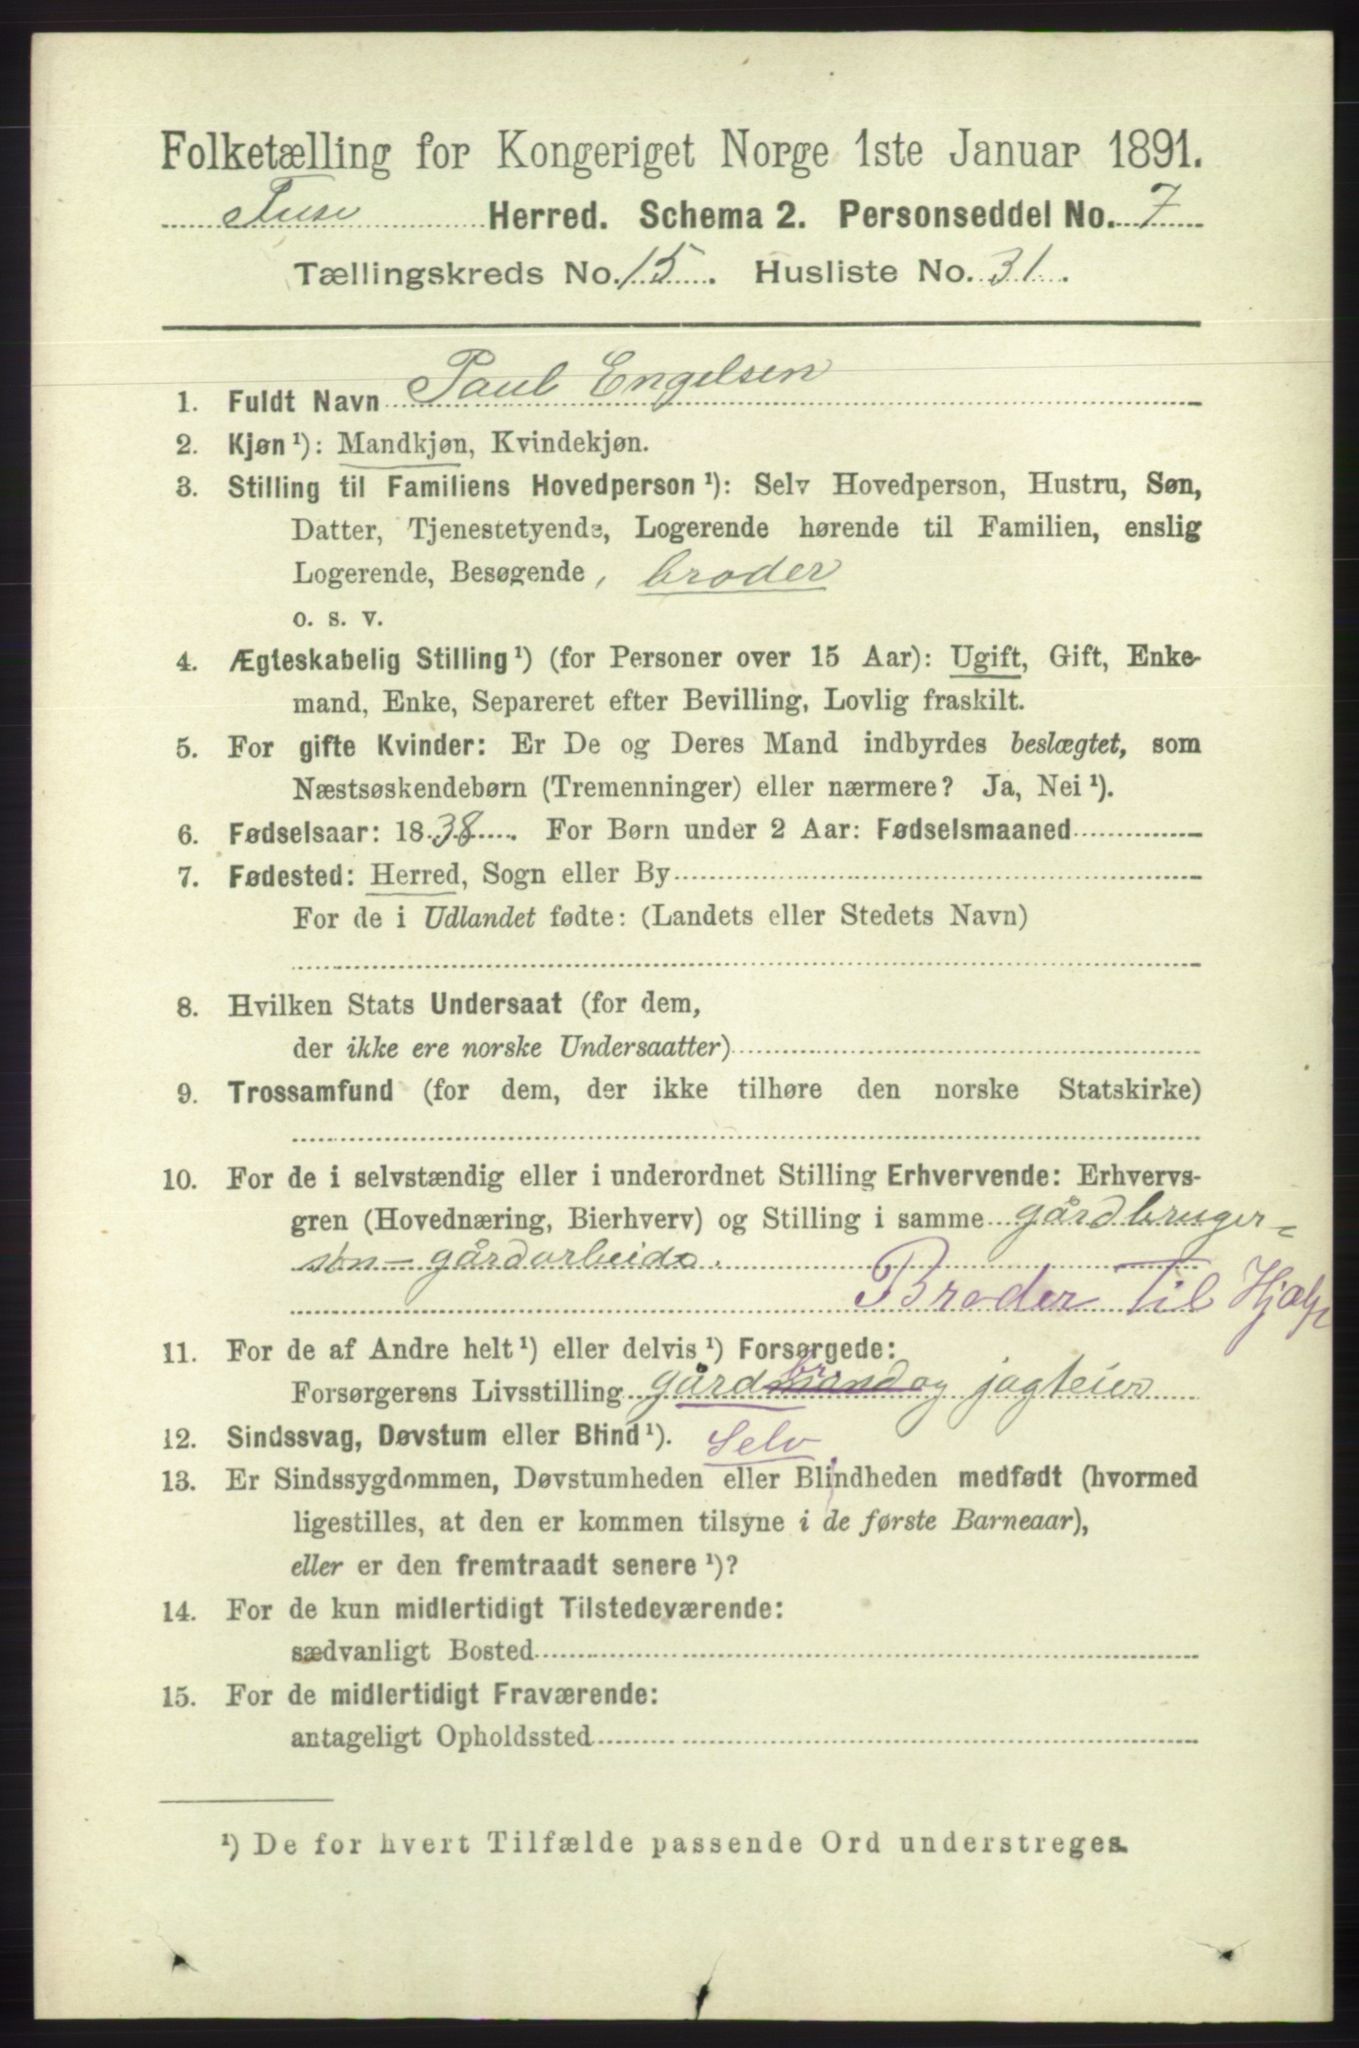 Folketælling for Kongeriget Norge 1ste Januar 1891.
Fuse Herred. Schema 2. Personseddel No. 7
Tællingskreds No. 15. Husliste No. 31.
1. Fuldt Navn Paul Engelsen
2. Kjøn ¹): Mandkjøn, Kvindekjøn.
3. Stilling til Familiens Hovedperson ¹): Selv Hovedperson, Hustru, Søn,
Datter, Tjenestetyende, Logerende hørende til Familien, enslig
Logerende, Besøgende, broder
o. s. v.
4. Ægteskabelig Stilling ¹) (for Personer over 15 Aar): Ugift, Gift, Enke-
mand, Enke, Separeret efter Bevilling, Lovlig fraskilt.
5. For gifte Kvinder: Er De og Deres Mand indbyrdes beslægtet, som
Næstsøskendebørn (Tremenninger) eller nærmere? Ja, Nei ¹).
6. Fødselsaar: 1838. For Børn under 2 Aar: Fødselsmaaned
7. Fødested: Herred, Sogn eller By
For de i Udlandet fødte: (Landets eller Stedets Navn)
8. Hvilken Stats Undersaat (for dem,
der ikke ere norske Undersaatter)
9. Trossamfund (for dem, der ikke tilhøre den norske Statskirke)
10. For de i selvstændig eller i underordnet Stilling Erhvervende: Erhvervs-
gren (Hovednæring, Bierhverv) og Stilling i samme gårdbruger-
søn - gårdarbeide.
Broder til Hjælp
11. For de af Andre helt ¹) eller delvis ¹) Forsørgede:
br
Forsørgerens Livsstilling gårdmand og jagteier
12. Sindssvag, Døvstum eller Blind ¹). Selv
13. Er Sindssygdommen, Døvstumheden eller Blindheden medfødt (hvormed
ligestilles, at den er kommen tilsyne i de første Barneaar),
eller er den fremtraadt senere ¹)?
14. For de kun midlertidigt Tilstedeværende:
sædvanligt Bosted
15. For de midlertidigt Fraværende:
antageligt Opholdssted
¹) De for hvert Tilfælde passende Ord understreges.